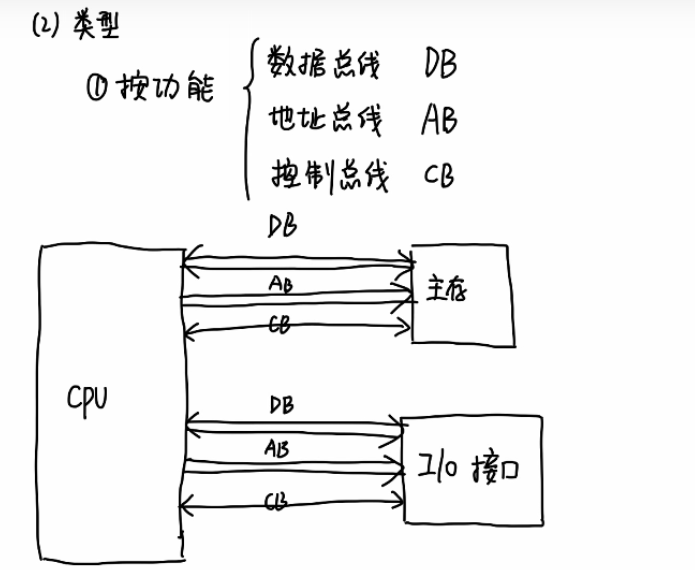 (2) 类型
①按功能
数据总线 DB
地址总线 AB
控制总线 CB
DB
AB
主存
CB
CPU
DB
AB
I/O 接口
CB